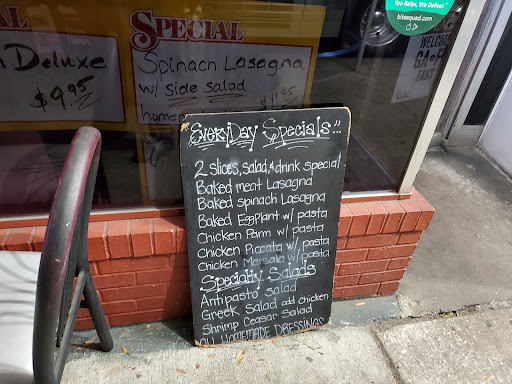 You Relax, We Deliver.
bitesquad.com
AL
SPECIAL
Deluxe
$9.95
Spinach Lasagna
w/ Side Salad
WELCOME
FANS
EveryDay Specials:
2 slices, salad, & drink special
Baked meat Lasagna
Baked spinach Lasagna
Baked Eggplant w/ pasta
Chicken Parm w/ pasta
Chicken Piccata w/ pasta
Chicken Marsala w/ pasta
Specialty Salads
Antipasto Salad
Greek Salad add chicken
Shrimp Ceasar Salad
HOMEMADE DRESSINGS